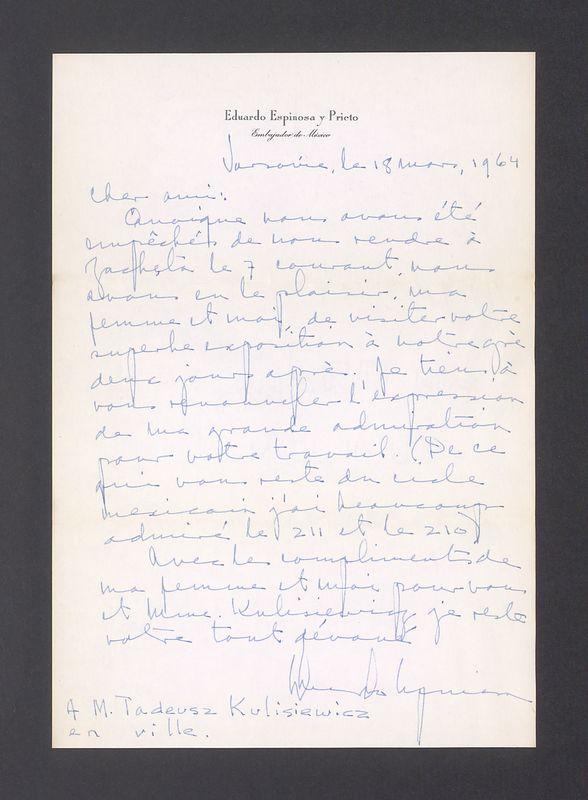 Eduardo Espinosa y Prieto
Embajador de México
Varsovie, le 18 mars, 1964
Cher ami:
Quoique nous avons été
empêchés de nous rendre à
Zachęta le 7 courant, nous
avons eu le plaisir, ma
femme et moi, de visiter votre
superbe exposition à notre gré
deux jours après. Je tiens à
vous renouveler l'expression
de ma grande admiration
pour votre travail. (De ce
qui vous reste du cicle
mexicain j'ai beaucoup
admiré le 211 et le 210)
Avec les compliments de
ma femme et moi pour vous
et Mme. Kulisiewicz, je reste
votre tout dévoué
A M. Tadeusz Kulisiewicz
en ville.